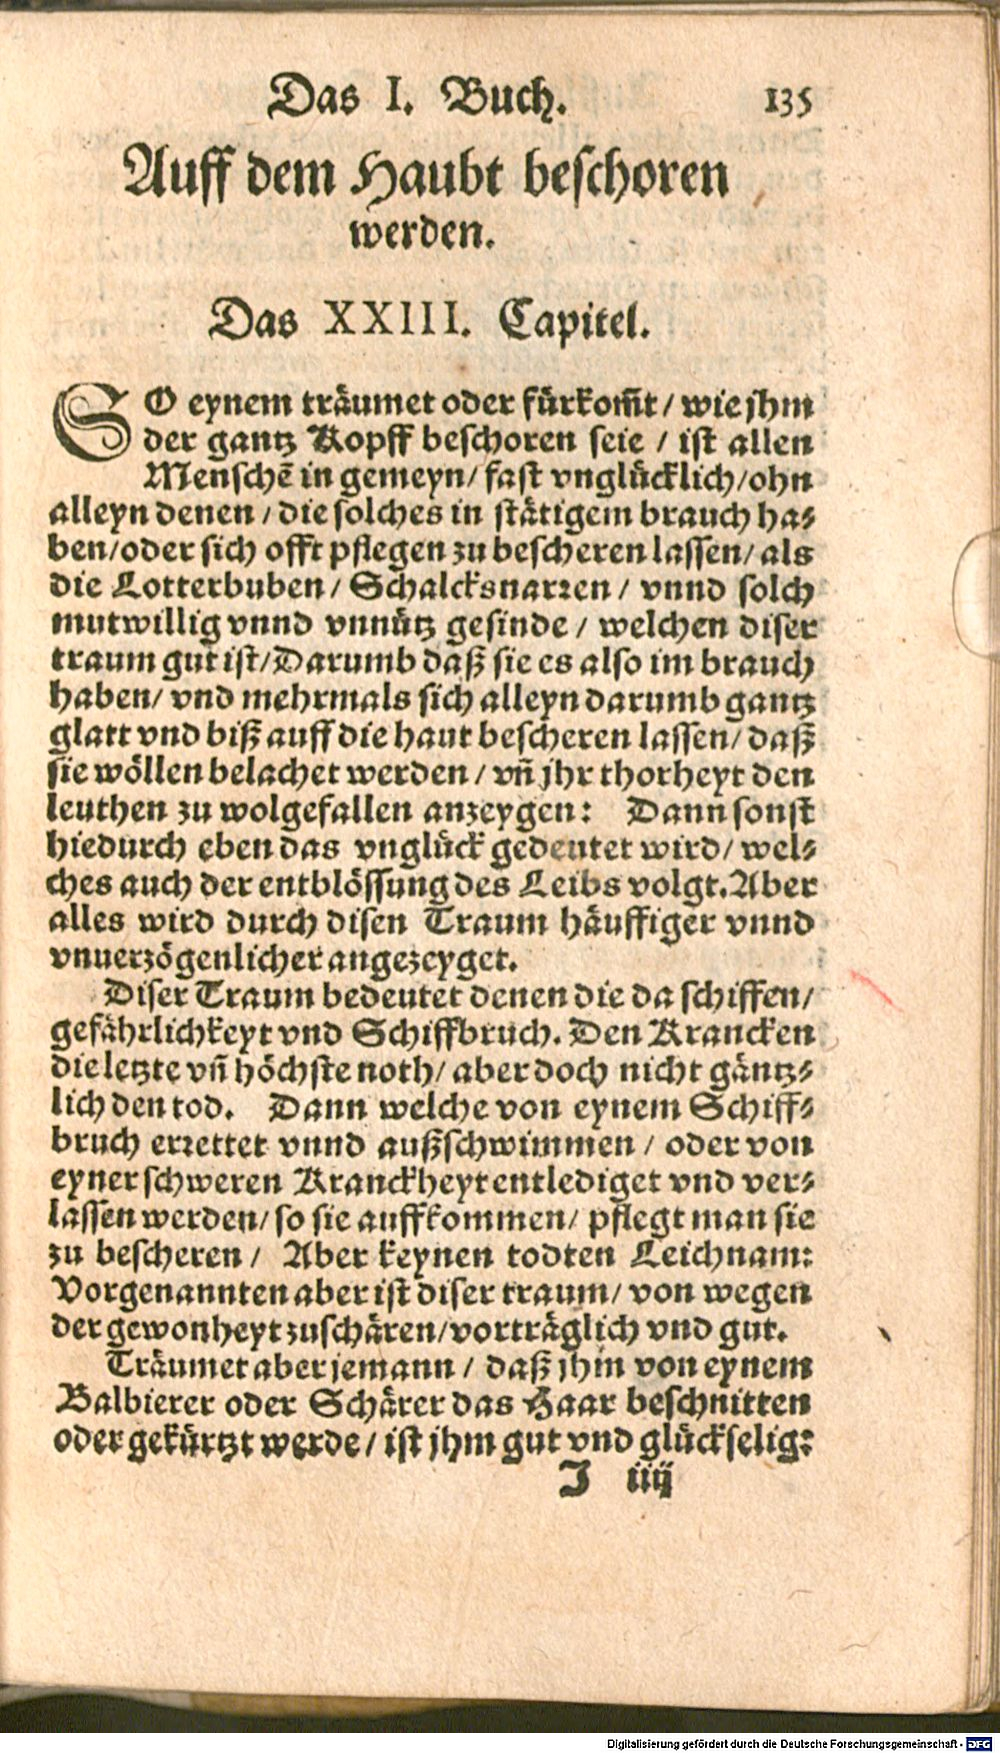 Das I. Buch. 135
Auff dem Haubt beschoren
werden.
Das XXIII. Capitel.
SO eynem träumet oder fürkom̃t / wie jhm
der gantz Kopff beschoren seie / ist allen
Menschẽ in gemeyn / fast vnglücklich / ohn
alleyn denen / die solches in stätigem brauch ha⸗
ben / oder sich offt pflegen zu bescheren lassen / als
die Lotterbuben / Schalcksnarren / vnnd solch
mutwillig vnnd vnnütz gesinde / welchen diser
traum gut ist / Darumb daß sie es also im brauch
haben / vnd mehrmals sich alleyn darumb gantz
glatt vnd biß auff die haut bescheren lassen / daß
sie wöllen belachet werden / vñ jhr thorheyt den
leuthen zu wolgefallen anzeygen: Dann sonst
hiedurch eben das vnglück gedeutet wird / wel⸗
ches auch der entblössung des Leibs volgt. Aber
alles wird durch disen Traum häuffiger vnnd
vnuerzögenlicher angezeyget.
Diser Traum bedeutet denen die da schiffen /
gefährlichkeyt vnd Schiffbruch. Den Krancken
die letzte vñ höchste noth / aber doch nicht gäntz⸗
lich den tod. Dann welche von eynem Schiff⸗
bruch errettet vnnd außschwimmen / oder von
eyner schweren Kranckheyt entlediget vnd ver⸗
lassen werden / so sie auffkommen / pflegt man sie
zu bescheren / Aber keynen todten Leichnam:
Vorgenannten aber ist diser traum / von wegen
der gewonheyt zuschären / vorträglich vnd gut.
Träumet aber jemann / daß jhm von eynem
Balbierer oder Schärer das Haar beschnitten
oder gekürtzt werde / ist jhm gut vnd glückselig:
J iiij
Digitalisierung gefördert durch die Deutsche Forschungsgemeinschaft - DFG